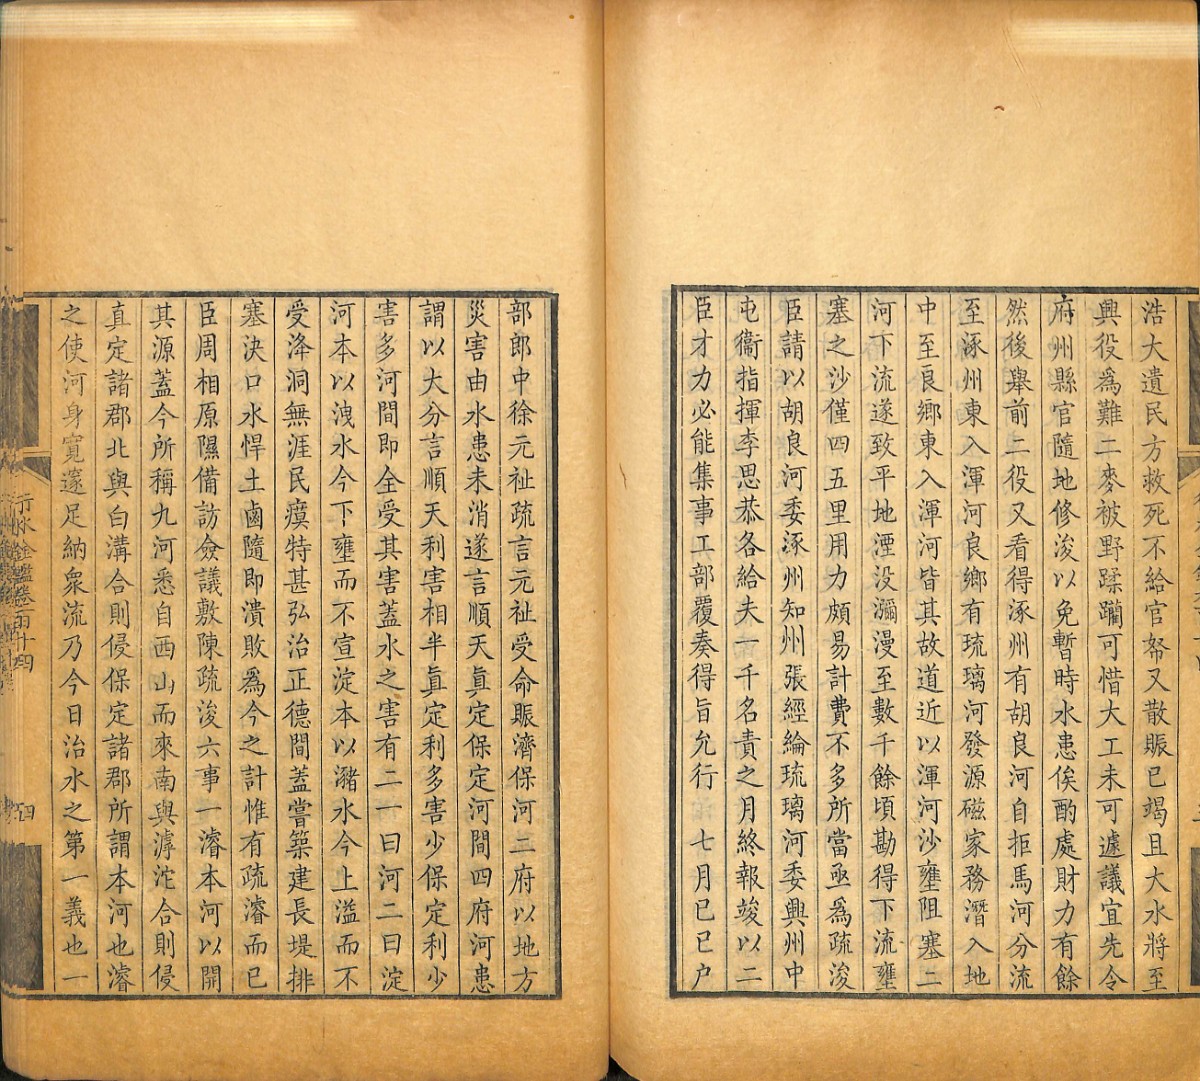 浩大遺民方救死不給官帑又散賑已竭且大水將至
興役為難二麥被野蹂躪可惜大工未可遽議宜先令
府州縣官隨地修浚以免暫時水患俟酌處財力有餘
然後舉前二役又看得涿州有胡良河自拒馬河分流
至涿州東入渾河良鄉有琉璃河發源磁家務潛入地
中至良鄉東入渾河皆其故道近以渾河沙壅阻塞二
河下流遂致平地湮没瀰漫至數千餘頃勘得下流壅
塞之沙僅四五里用力頗易計費不多所當亟為疏浚
臣請以胡良河委涿州知州張經綸琉璃河委興州中
屯衞指揮李思恭各給夫一千名責之月終報竣以二
臣才力必能集事工部覆奏得旨允行 七月己巳户
部郎中徐元祉疏言元祉受命賑濟保河二府以地方
災害由水患未消遂言順天真定保定河間四府河患
謂以大分言順天利害相半真定利多害少保定利少
害多河間即全受其害蓋水之害有二一曰河二曰淀
河本以洩水今下壅而不宣淀本以瀦水今上溢而不
受洚洞無涯民瘼特甚弘治正德間蓋嘗築建長堤排
塞決口水悍土鹵隨即潰敗為今之計惟有疏濬而已
臣周相原隰備訪僉議敷陳疏浚六事一濬本河以開
其源蓋今所稱九河悉自西山而來南與滹沱合則侵
真定諸郡北與白溝合則侵保定諸郡所謂本河也濬
之使河身寬邃足納衆流乃今日治水之第一義也一
行水金鑑卷一百十四
四